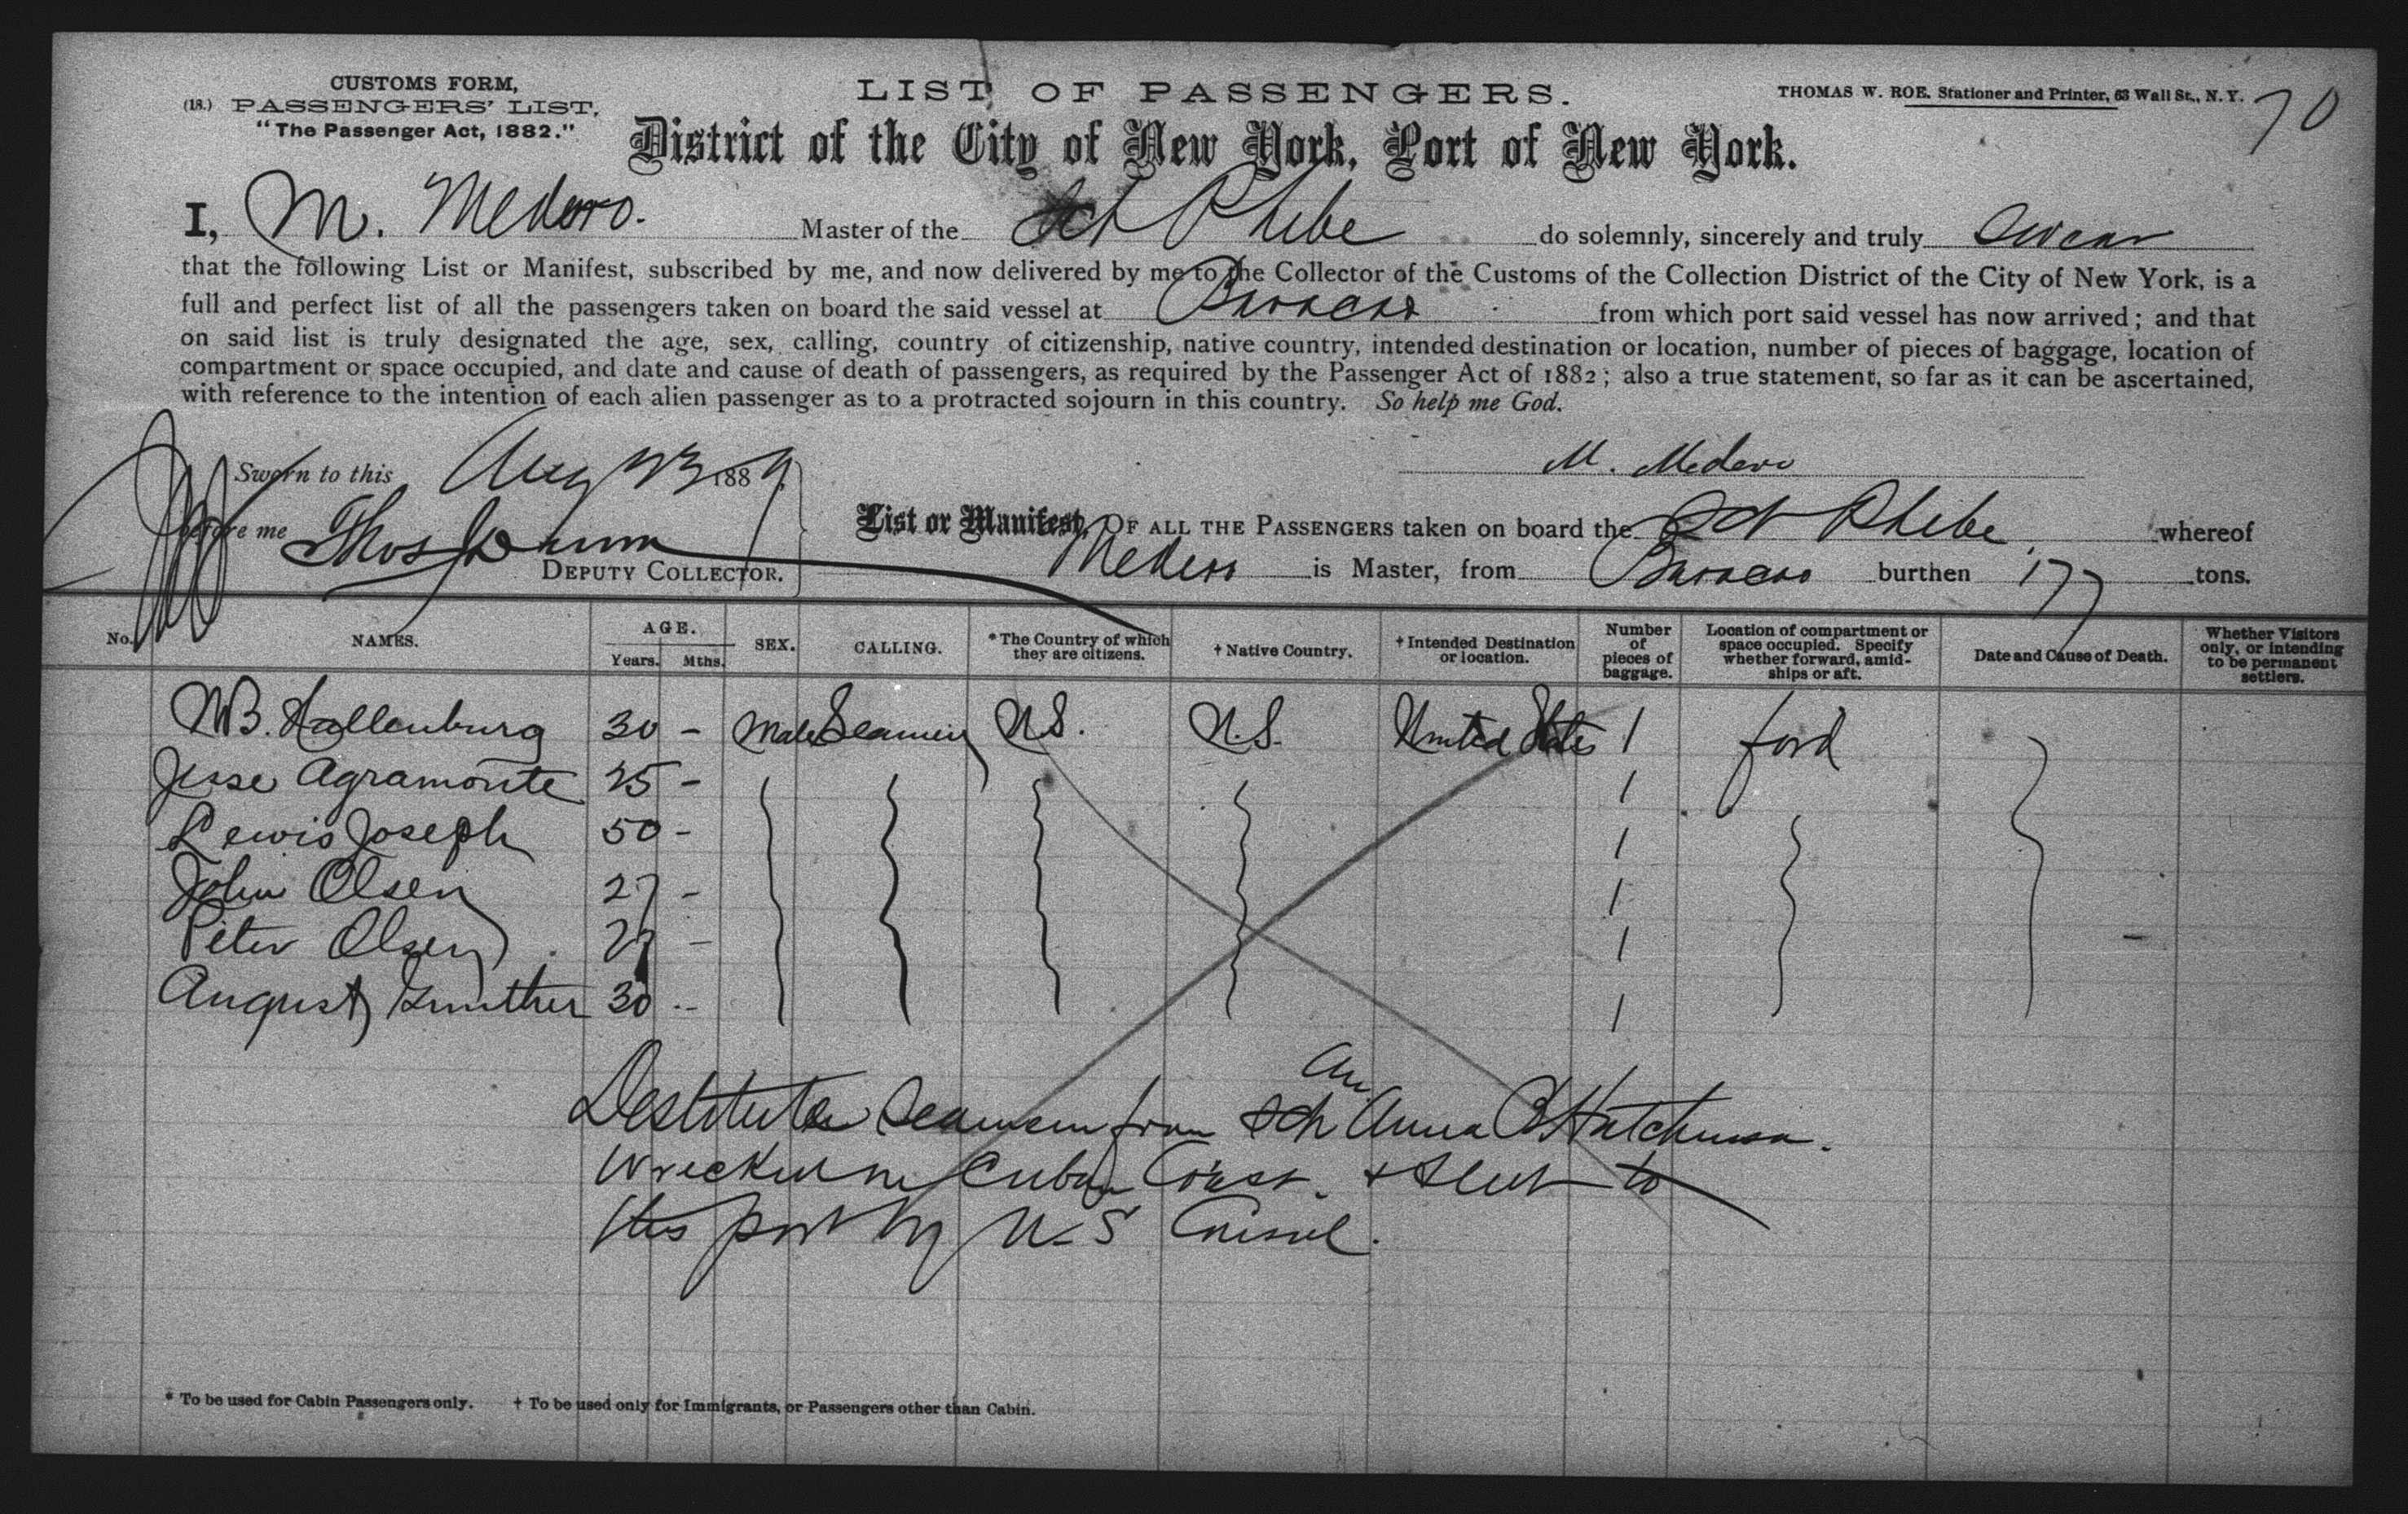 CUSTOMS FORM,
(18.) PASSENGERS' LIST,
"The Passenger Act, 1882."
LIST OF PASSENGERS.
THOMAS W. ROE, Stationer and Printer, 63 Wall St., N. Y.
70
District of the City of New York, Port of New York.
I, M. Medero. Master of the Sch Phebe do solemnly, sincerely and truly swear
that the following List or Manifest, subscribed by me, and now delivered by me to the Collector of the Customs of the Collection District of the City of New York, is a
full and perfect list of all the passengers taken on board the said vessel at Baracoa from which port said vessel has now arrived; and that
on said list is truly designated the age, sex, calling, country of citizenship, native country, intended destination or location, number of pieces of baggage, location of
compartment or space occupied, and date and cause of death of passengers, as required by the Passenger Act of 1882; also a true statement, so far as it can be ascertained,
with reference to the intention of each alien passenger as to a protracted sojourn in this country. So help me God.
M. Medero
Sworn to this Aug 23 1889
before me Thos
DEPUTY COLLECTOR.
List or Manifest, OF ALL THE PASSENGERS taken on board the Sch Phebe whereof
Medero is Master, from Baracoa burthen 177 tons.
No. NAMES. AGE. Years. Mths. SEX. CALLING. *The Country of which they are citizens. † Native Country. † Intended Destination or location. Number of pieces of baggage. Location of compartment or space occupied. Specify whether forward, amidships or aft. Date and Cause of Death. Whether Visitors only, or intending to be permanent settlers.
W B. Hallenburg 30 - Male Seamen U S. U.S. United States 1 ford
Jesse Agramonte 25 - 1
Lewis Joseph 50 - 1
John Olsen 27 - 1
Peter Olsen 27 - 1
August Gunther 30 - 1
Am
Destitute Seamen from Sch Anna B Hutchinson.
Wrecked on Cuban Coast. + sent to
this port by U-S Consul.
* To be used for Cabin Passengers only. † To be used only for Immigrants, or Passengers other than Cabin.